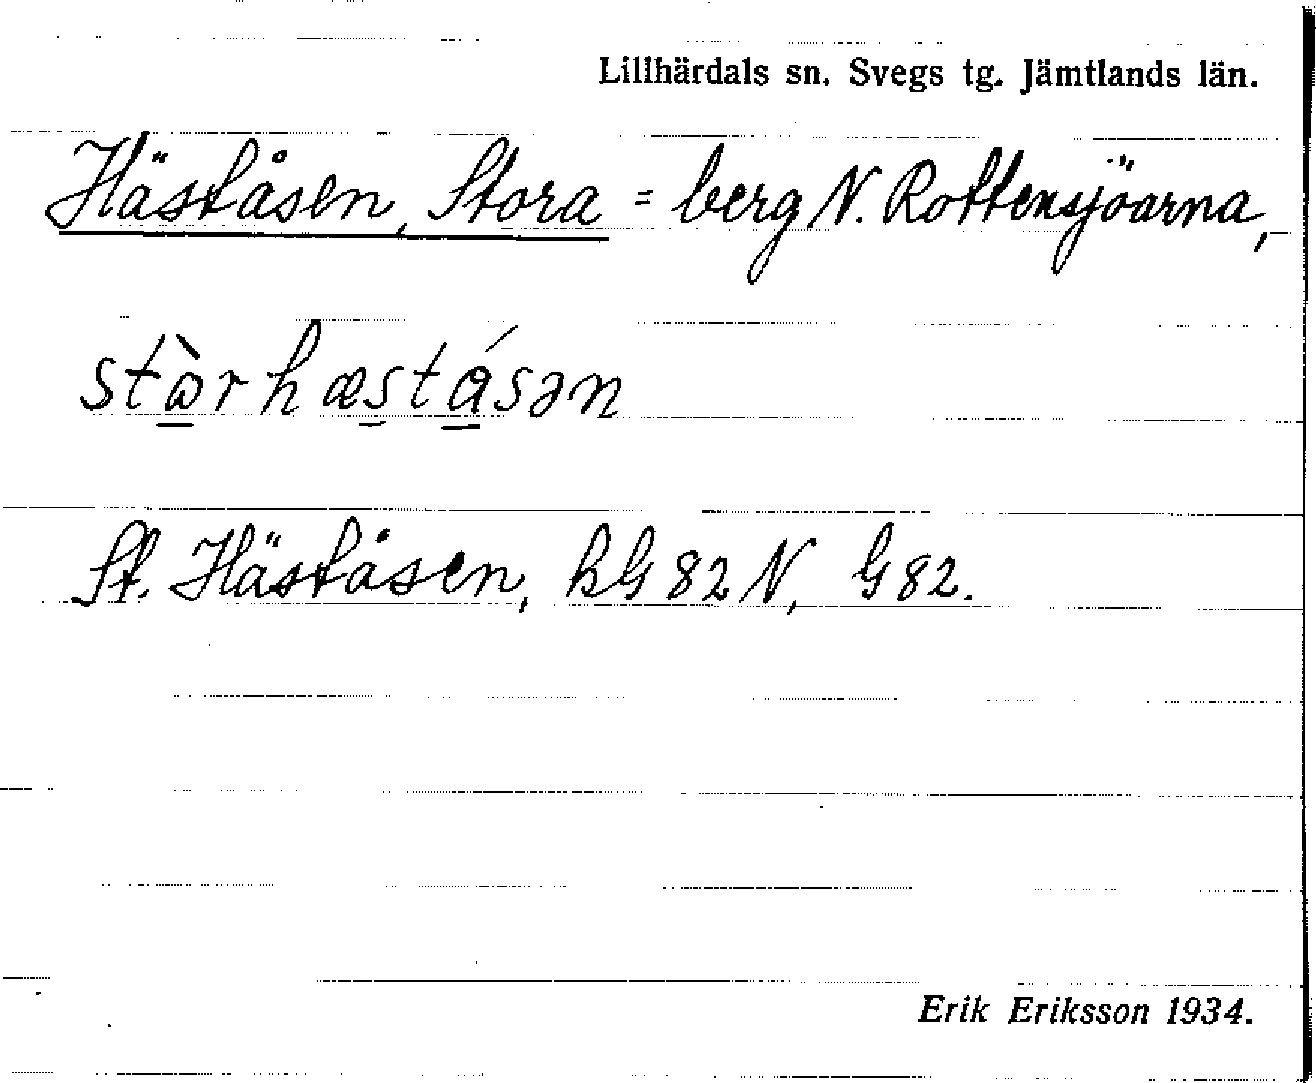 Lillhärdals sn. Svegs tg. Jämtlands län.
Håståsen, Stora = berg N. Rottensjöarna,
stòrhæstásən
St. Håståsen, hG82N, G82.
Erik Eriksson 1934.